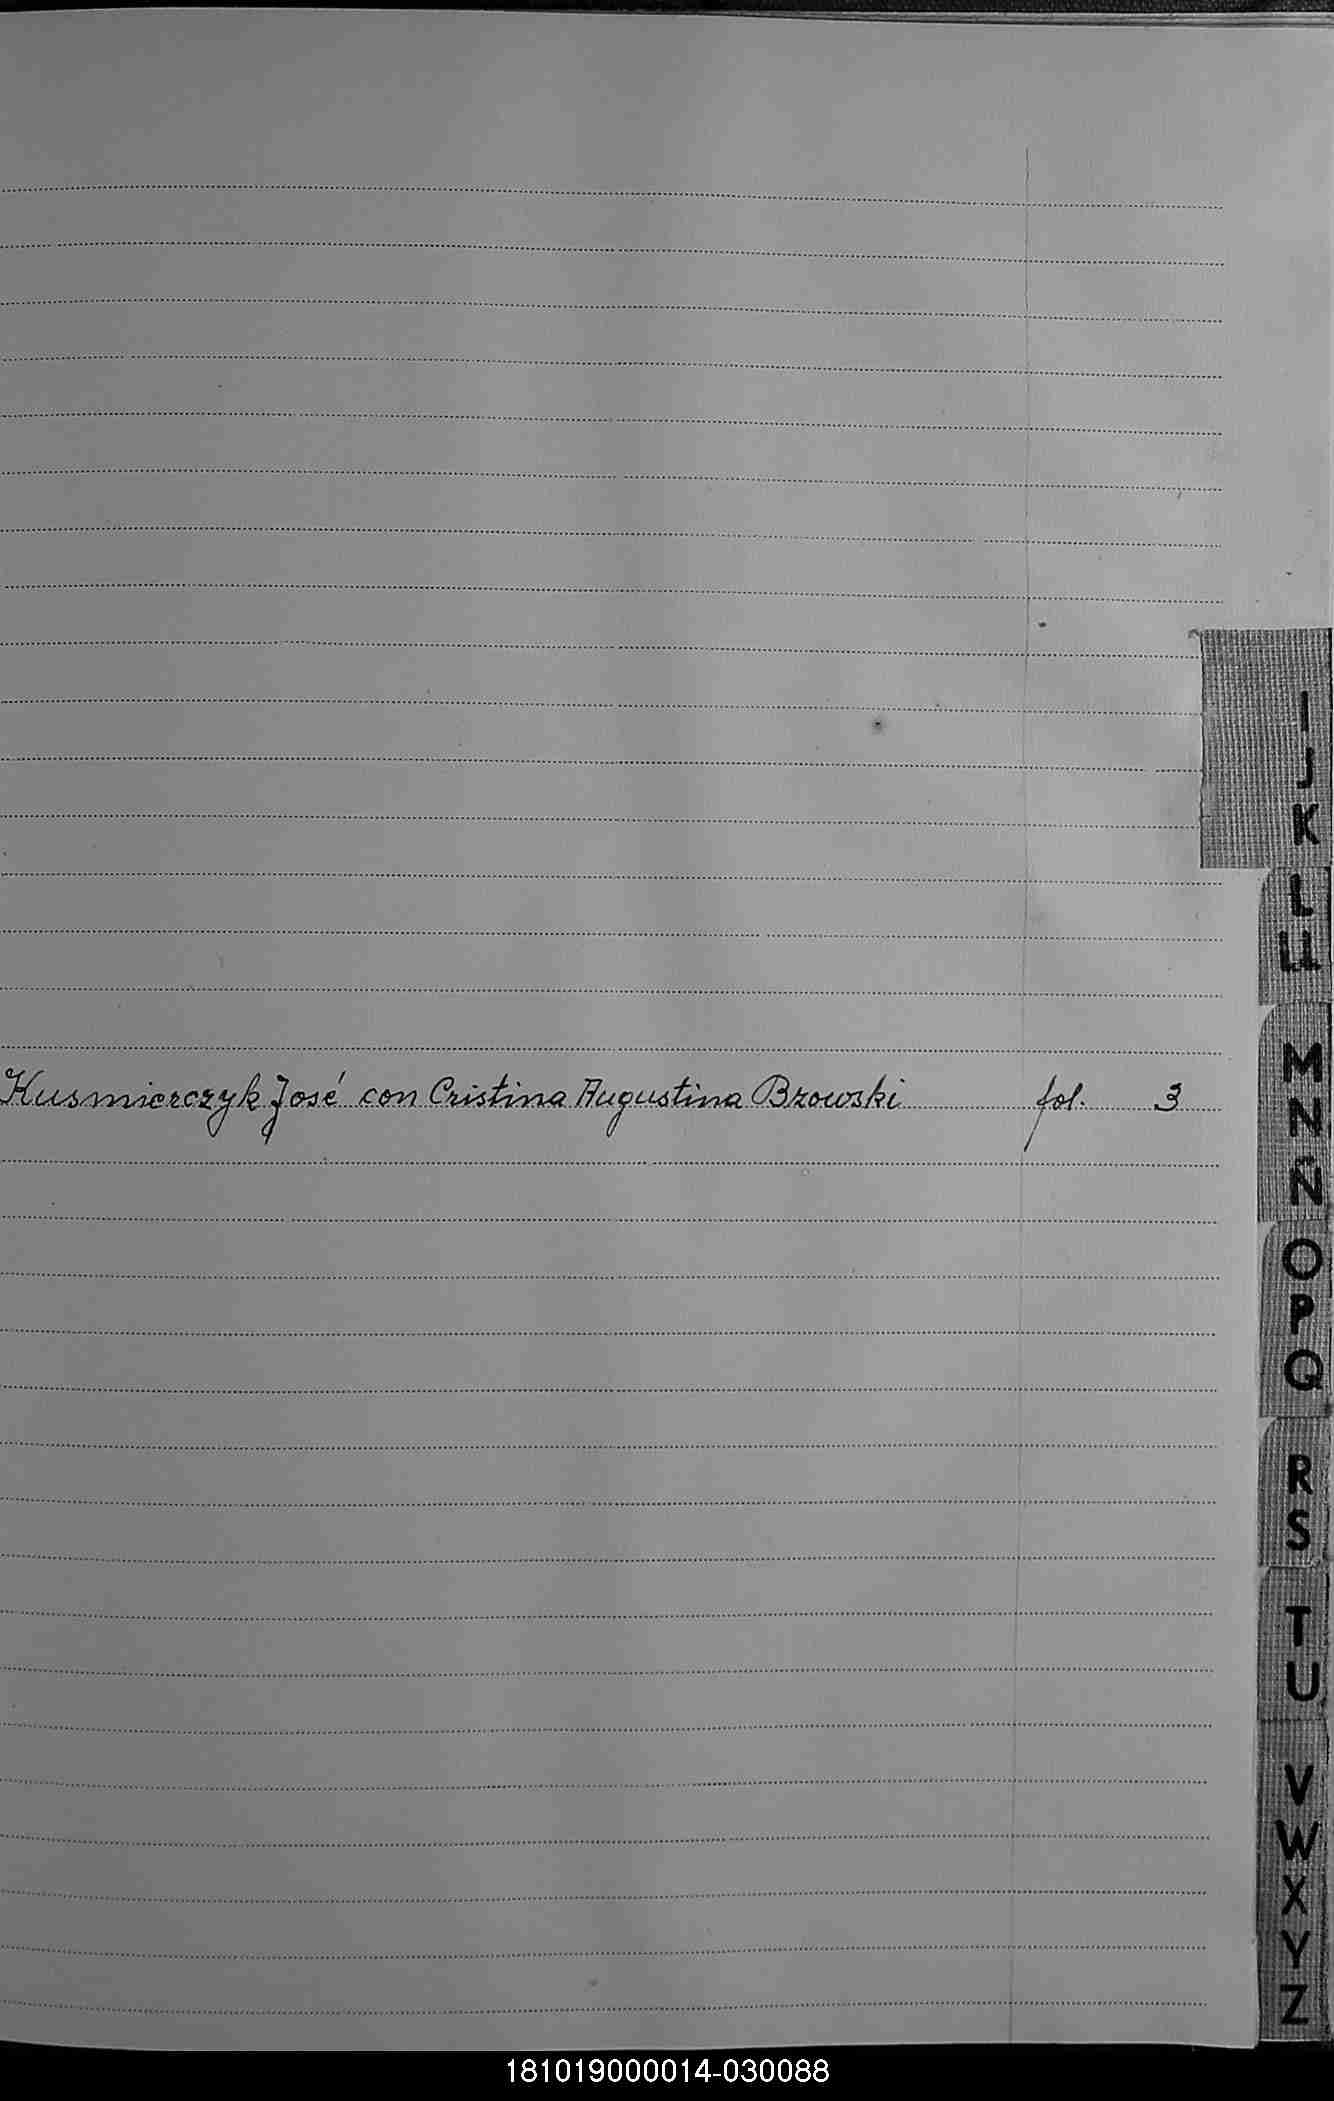 I
J
K
L
LL
M
N
Ñ
Kusmierczyk José con Cristina Augustina Browski fol. 3
O
P
Q
R
S
T
U
V
W
X
Y
Z
181019000014-030088